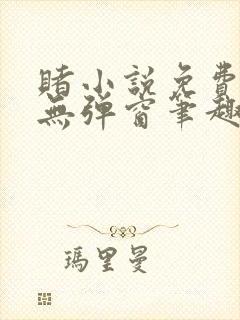 賭小説免費
無彈窗筆趣
瑪里曼